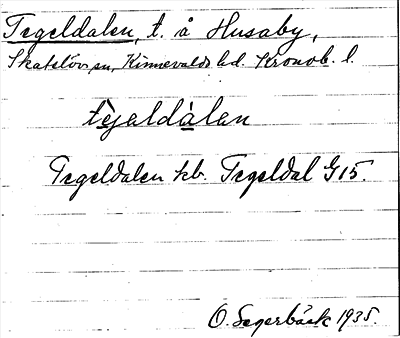 Tegeldalen, t. å Husaby,
Skatelövs sn, Kinnevalds hd. Kronob. l.
tejəldàlən
Tegeldalen kb. Tegeldal G15.
O. Segerbäck 1935.